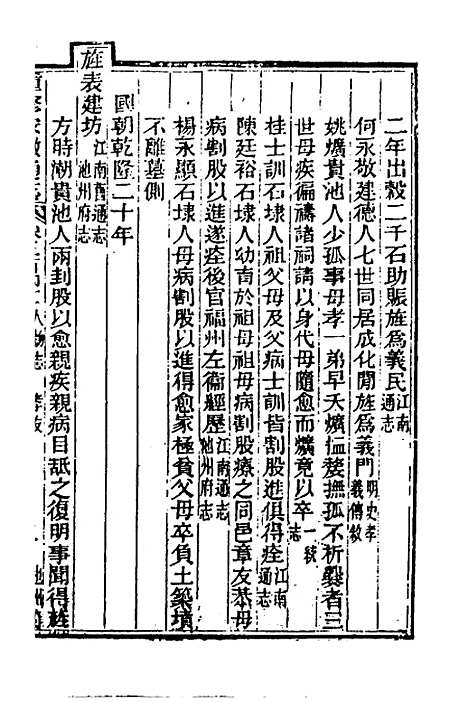 二年出穀二千石助賑旌爲義民江南通志
何永敬建德人七世同居成化閒旌爲義門明史孝義傳敘
姚爌貴池人少孤事母孝一弟早夭爌恤嫠撫孤不析爨者三
世母疾徧禱諸祠請以身代母隨愈而爌竟以卒一統志
桂士訓石埭人祖父母及父病士訓皆割股進俱得痊江南通志
陳廷裕石埭人幼南於祖母祖母病割股療之同邑章友恭母
病割股以進遂痊後官福州左衞經歷江南通志池州府志
楊永顯石埭人母病割股以進得愈家極貧父母卒負土築墳
不離墓側
國朝乾隆二十年
旌表建坊江南舊通志池州府志
方時潮貴池人兩刲股以愈親疾親病目舐之復明事聞得旌